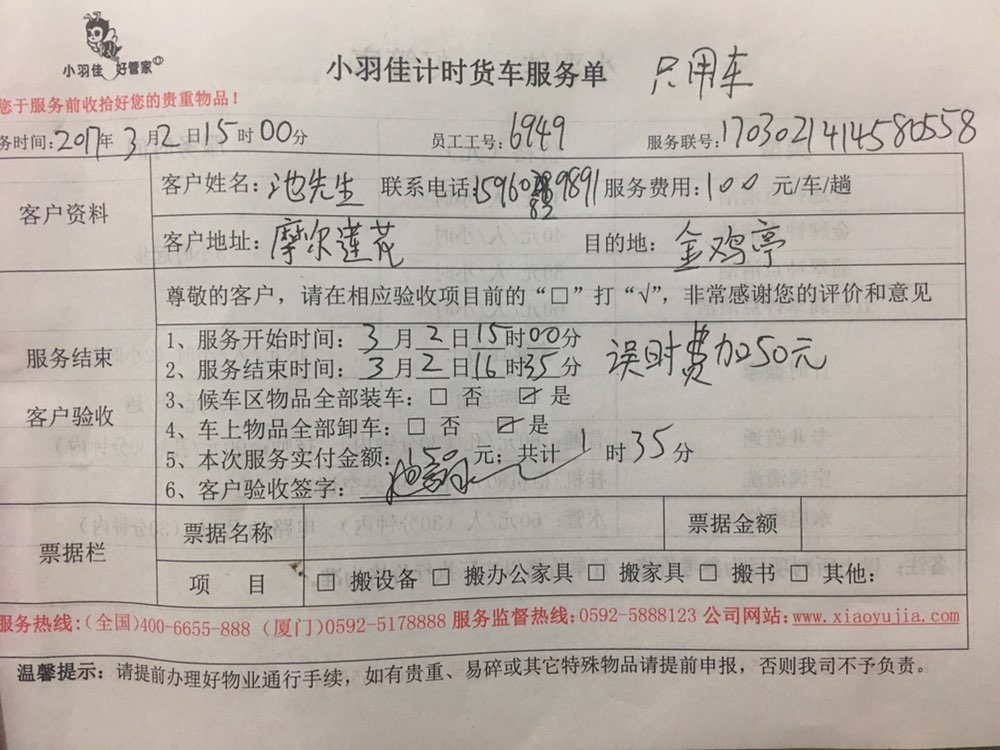 小羽佳 好管家
小羽佳计时货车服务单 只用车
您于服务前收拾好您的贵重物品！
务时间:2017年3月2日15时00分 员工工号:6949 服务联号:1703021414580558
客户资料
客户姓名:池先生 联系电话:15960 9891 服务费用:100元/车/趟
83
客户地址:摩尔莲花 目的地:金鸡亭
尊敬的客户，请在相应验收项目前的“□”打“√”，非常感谢您的评价和意见
服务结束
客户验收
1、服务开始时间：3月2日15时00分
2、服务结束时间：3月2日16时35分
误时费加50元
3、候车区物品全部装车：□ 否 ☑ 是
4、车上物品全部卸车：□ 否 ☑ 是
5、本次服务实付金额：150元；共计1时35分
6、客户验收签字：
票据栏
票据名称 票据金额
项 目 □ 搬设备 □ 搬办公家具 □ 搬家具 □ 搬书 □ 其他：
服务热线:(全国)400-6655-888 (厦门)0592-5178888 服务监督热线:0592-5888123 公司网站:www.xiaoyujia.com
温馨提示：请提前办理好物业通行手续，如有贵重、易碎或其它特殊物品请提前申报，否则我司不予负责。